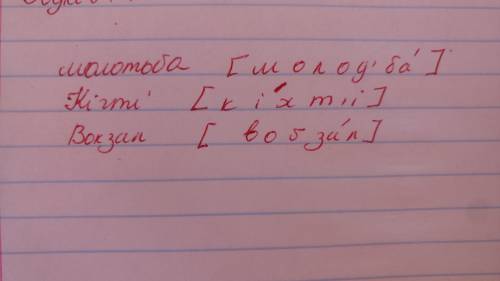 молотьба [м о л о д' ба́]
Кігті [к і́ х т' і]
Вокзал [в о ґ за́ л]